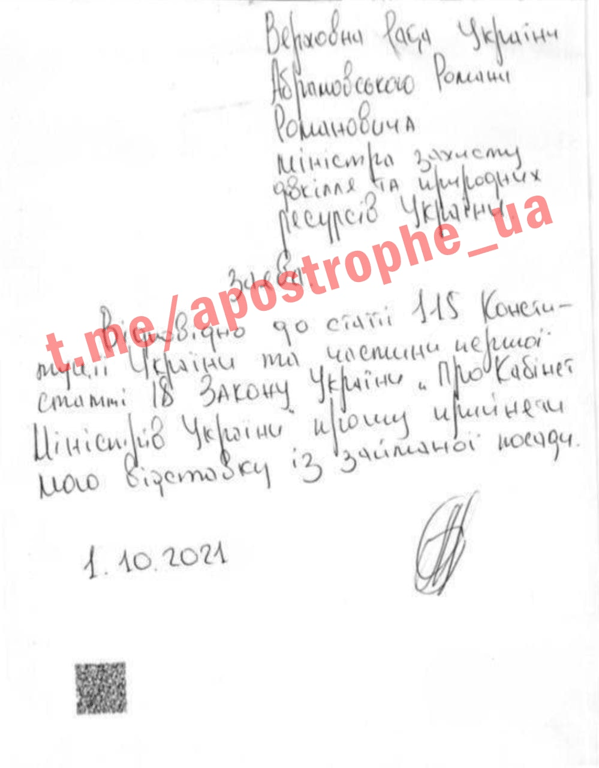 Верховна Рада України
Абрамовського Романа
Романовича
міністра захисту
довкілля та природних
ресурсів України
Заява.
Відповідно до статті 115 Консти-
туції України та частини першої
статті 18 Закону України „Про Кабінет
Міністрів України" прошу прийняти
мою відставку із займаної посади.
1.10.2021
t.me/apostrophe_ua